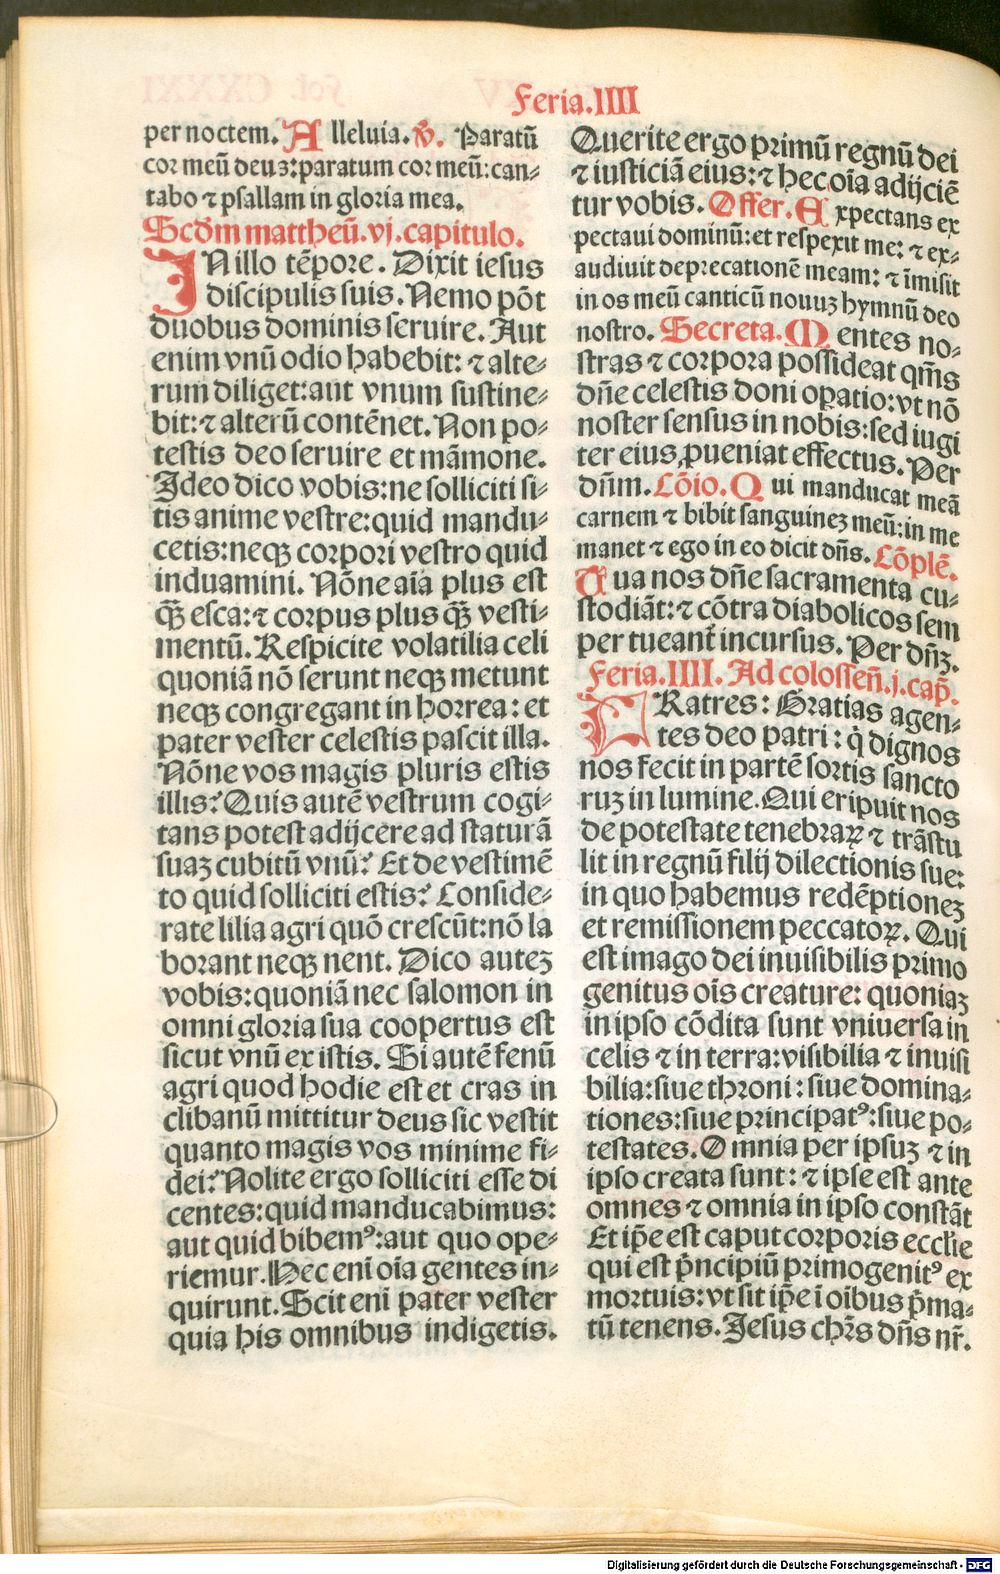 Feria.IIII
per noctem. Alleluia. V̄. Paratū
cor meū deus: paratum cor meū: can⸗
tabo ⁊ psallam in gloria mea.
Scd̄m mattheū.vj.capitulo.
IN illo tēpore. Dixit iesus
discipulis suis. Nemo pōt
duobus dominis seruire. Aut
enim vnū odio habebit: ⁊ alte⸗
rum diliget: aut vnum sustine⸗
bit: ⁊ alterū contēnet. Non po⸗
testis deo seruire et māmone.
Ideo dico vobis: ne solliciti si⸗
tis anime vestre: quid mandu⸗
cetis: neqꝫ corpori vestro quid
induamini. Nōne aīa plus est
qꝫ̄ esca: ⁊ corpus plus qꝫ̄ vesti⸗
mentū. Respicite volatilia celi
quoniā nō serunt neqꝫ metunt
neqꝫ congregant in horrea: et
pater vester celestis pascit illa.
Nōne vos magis pluris estis
illis? Quis autē vestrum cogi⸗
tans potest adijcere ad staturā
suaꝫ cubitū vnū? Et de vestimē
to quid solliciti estis? Conside⸗
rate lilia agri quō crescūt: nō la
borant neqꝫ nent. Dico auteꝫ
vobis: quoniā nec salomon in
omni gloria sua coopertus est
sicut vnū ex istis. Si autē fenū
agri quod hodie est et cras in
clibanū mittitur deus sic vestit
quanto magis vos minime fi⸗
dei? Nolite ergo solliciti esse di
centes: quid manducabimus:
aut quid bibemꝰ: aut quo ope⸗
riemur. Hec enī oīa gentes in⸗
quirunt. Scit enī pater vester
quia his omnibus indigetis.
Querite ergo primū regnū dei
⁊ iusticiā eius: ⁊ hec oīa adijciē
tur vobis. Offer. Expectans ex
pectaui dominū: et respexit me: ⁊ ex⸗
audiuit deprecationē meam: ⁊ īmisit
in os meū canticū nouuꝫ hymnū deo
nostro. Secreta. Mentes no⸗
stras ⁊ corpora possideat qm̄s
dn̄e celestis doni oꝑatio: vt nō
noster sensus in nobis: sed iugi
ter eius ꝓueniat effectus. Per
dn̄m. Cōio. Qui manducat meā
carnem ⁊ bibit sanguineꝫ meū: in me
manet ⁊ ego in eo dicit dn̄s. Cōplē.
Tua nos dn̄e sacramenta cu⸗
stodiāt: ⁊ cōtra diabolicos sem
per tueant᷑ incursus. Per dn̄ꝫ.
Feria.IIII. Ad colossen̄.j.cap̄.
FRatres: Gratias agen⸗
tes deo patri: q̇ dignos
nos fecit in partē sortis sancto
ruꝫ in lumine. Qui eripuit nos
de potestate tenebraꝝ ⁊ trāstu
lit in regnū filij dilectionis sue:
in quo habemus redēptioneꝫ
et remissionem peccatoꝝ. Qui
est imago dei inuisibilis primo
genitus oīs creature: quoniaꝫ
in ipso cōdita sunt vniuersa in
celis ⁊ in terra: visibilia ⁊ inuisi
bilia: siue throni: siue domina⸗
tiones: siue principatꝰ: siue po⸗
testates. Omnia per ipsuꝫ ⁊ in
ipso creata sunt: ⁊ ipse est ante
omnes ⁊ omnia in ipso constāt
Et ip̄e est caput corporis eccl̄ie
qui est pͥncipiū primogenitꝰ ex
mortuis: vt sit ip̄e ī oībus pͥma⸗
tū tenens. Jesus chr̄s dn̄s nr̄.
Digitalisierung gefördert durch die Deutsche Forschungsgemeinschaft - DFG